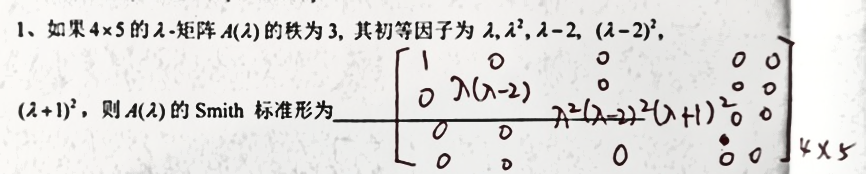 1、如果 4×5 的 λ-矩阵 A(λ) 的秩为 3, 其初等因子为 λ, λ², λ−2, (λ−2)²,
(λ+1)², 则 A(λ) 的 Smith 标准形为
1 0 0 0 0
0 λ(λ-2) 0 0 0
0 0 λ²(λ-2)²(λ+1)² 0 0
0 0 0 0 0
4×5